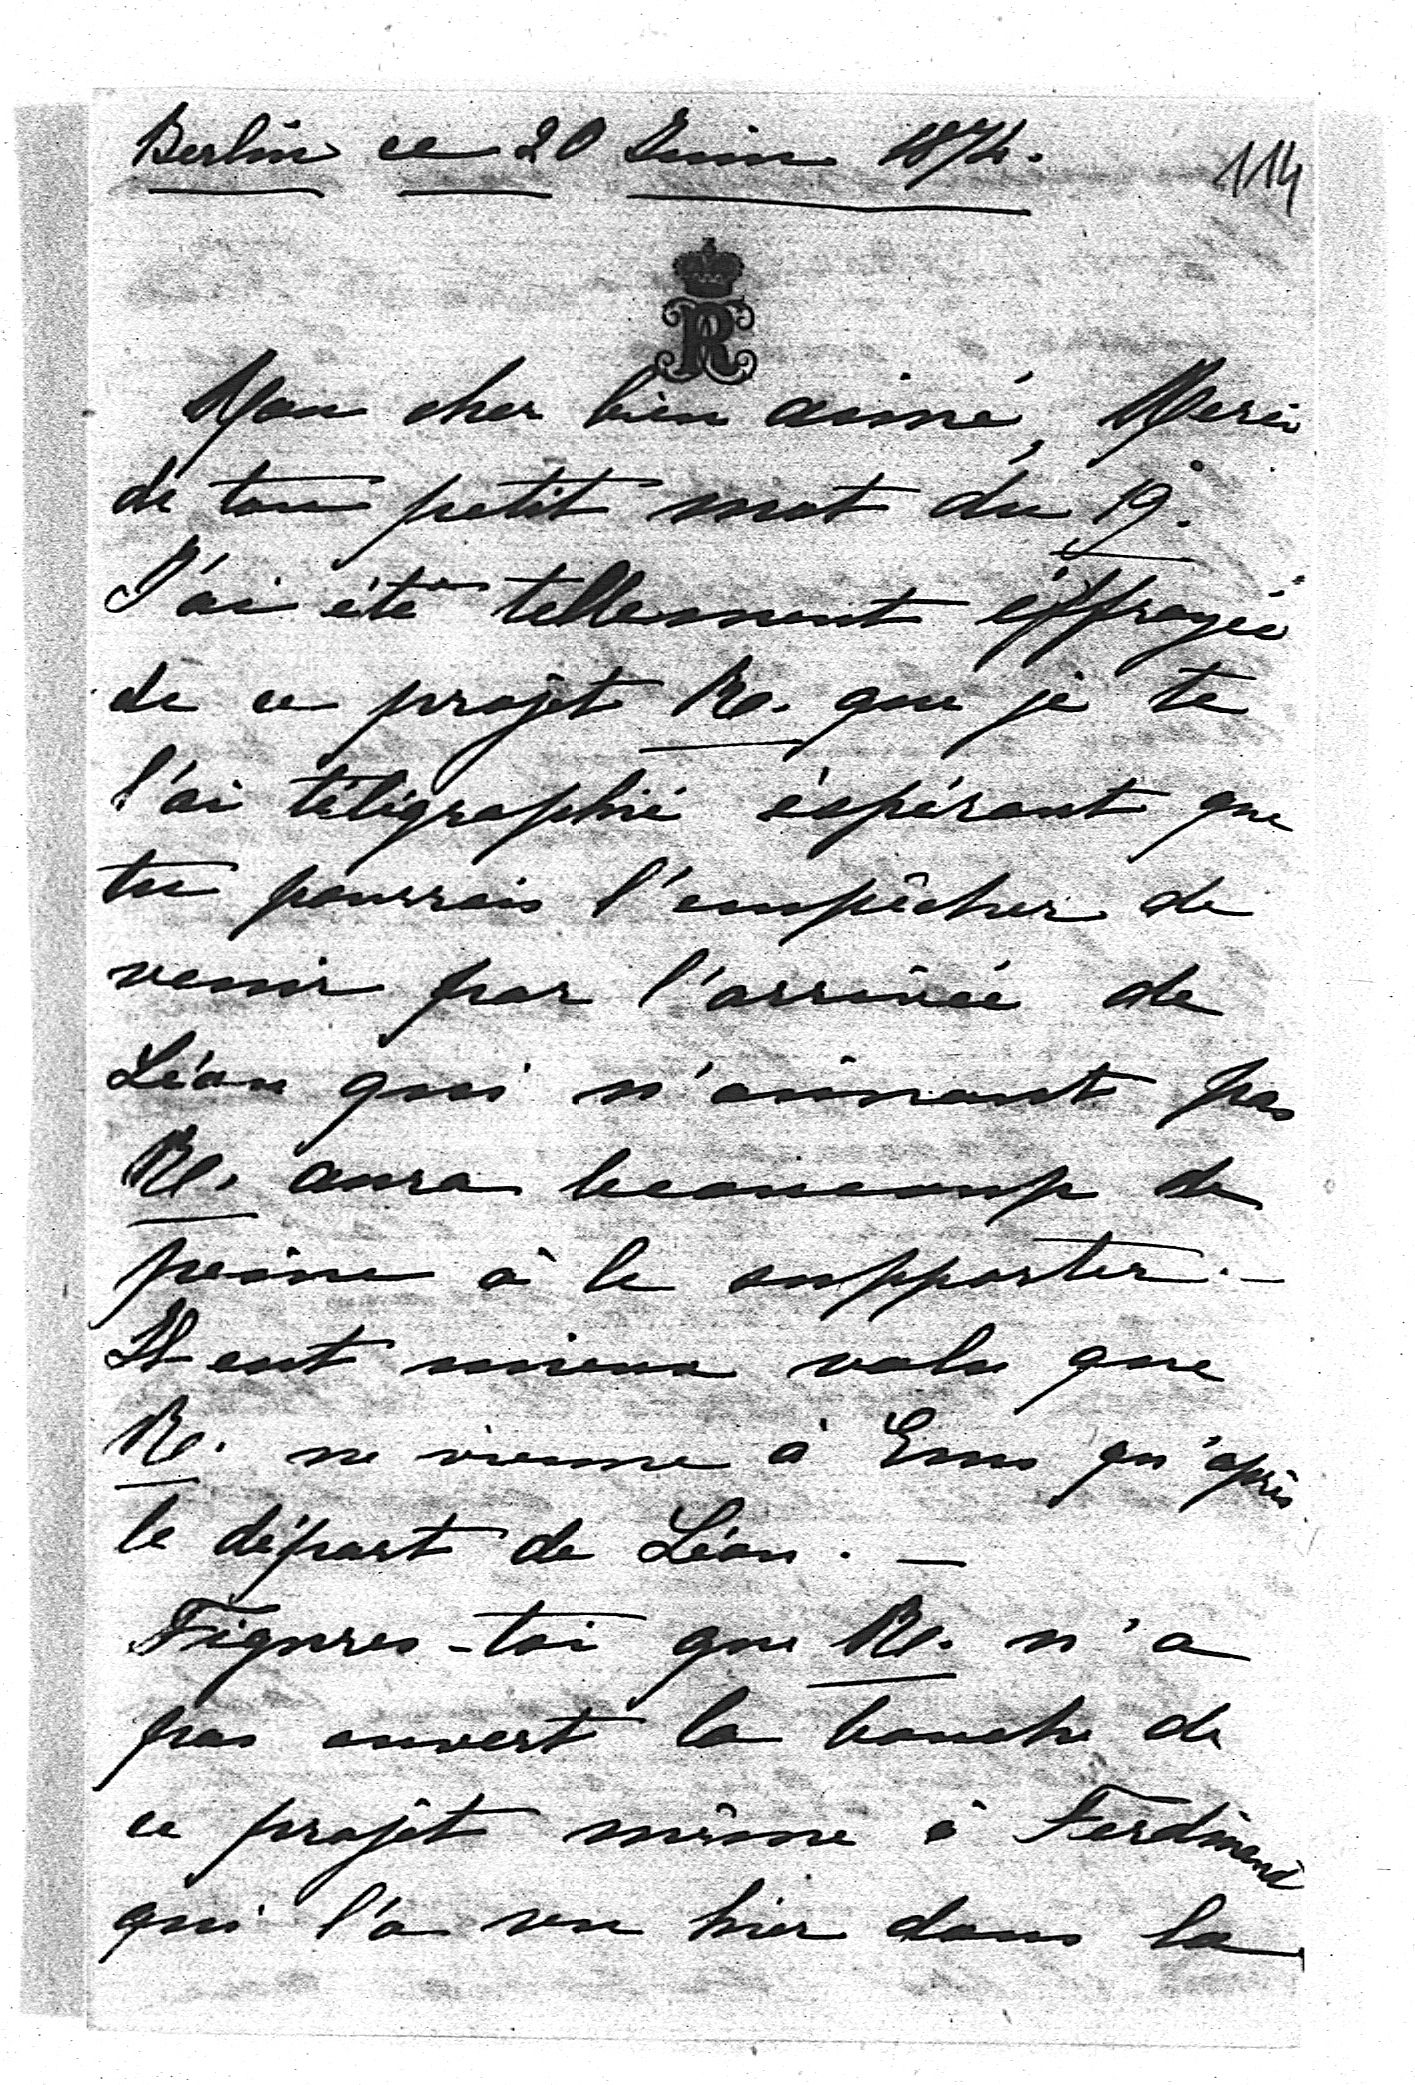 Berlin ce 20 Juin 1872.
114
R
Mon cher bien aimé, Merci
de ton petit mot du 19.
J'ai été tellement éffrayée
de ce projèt Re. que je te
l'ai télégraphié éspérant que
tu pourrais l'empêcher de
venir par l'arrivée de
Léon qui n'aimant pas
Re. aura beaucoup de
peine à le supporter. –
Il eut mieux valu que
Re. ne vienne à Ems qu'après
le départ de Léon. –
Figures-toi que Re. n'a
pas ouvert la bouche de
ce projèt même à Ferdinand
qui l'a vu hier dans la